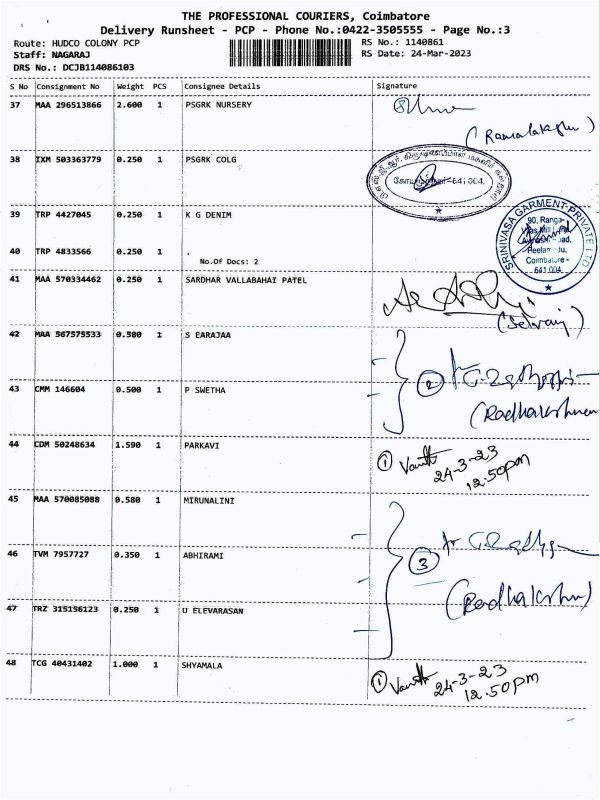 THE PROFESSIONAL COURIERS, Coimbatore
Delivery Runsheet - PCP - Phone No.:0422-3505555 - Page No.:3
Route: HUDCO COLONY PCP
RS No.: 1140861
Staff: NAGARAJ
RS Date: 24-Mar-2023
DRS No.: DCJB114086103
S No Consignment No Weight PCS Consignee Details Signature
37 MAA 296513866 2.600 1 PSGRK NURSERY
38 IXM 503363779 0.250 1 PSGRK COLG
641 004.
39 TRP 4427045 0.250 1 K G DENIM
SRINIVASA GARMENT PRIVATE LTD
90, Ranga
Coimbatore -
641 004
40 TRP 4833566 0.250 1
No.Of Docs: 2
41 MAA 570334462 0.250 1 SARDHAR VALLABAHAI PATEL
(Selvaraj)
42 MAA 567575533 0.580 1 S EARAJAA
2
43 CMM 146604 0.500 1 P SWETHA
(Radhakrishnan
44 CDM 50248634 1.590 1 PARKAVI
1
24-3-23
12.50pm
45 MAA 570085088 0.580 1 MIRUNALINI
46 TVM 7957727 0.350 1 ABHIRAMI
3
47 TRZ 315156123 0.250 1 U ELEVARASAN
48 TCG 40431402 1.000 1 SHYAMALA
1
24-3-23
12.50pm